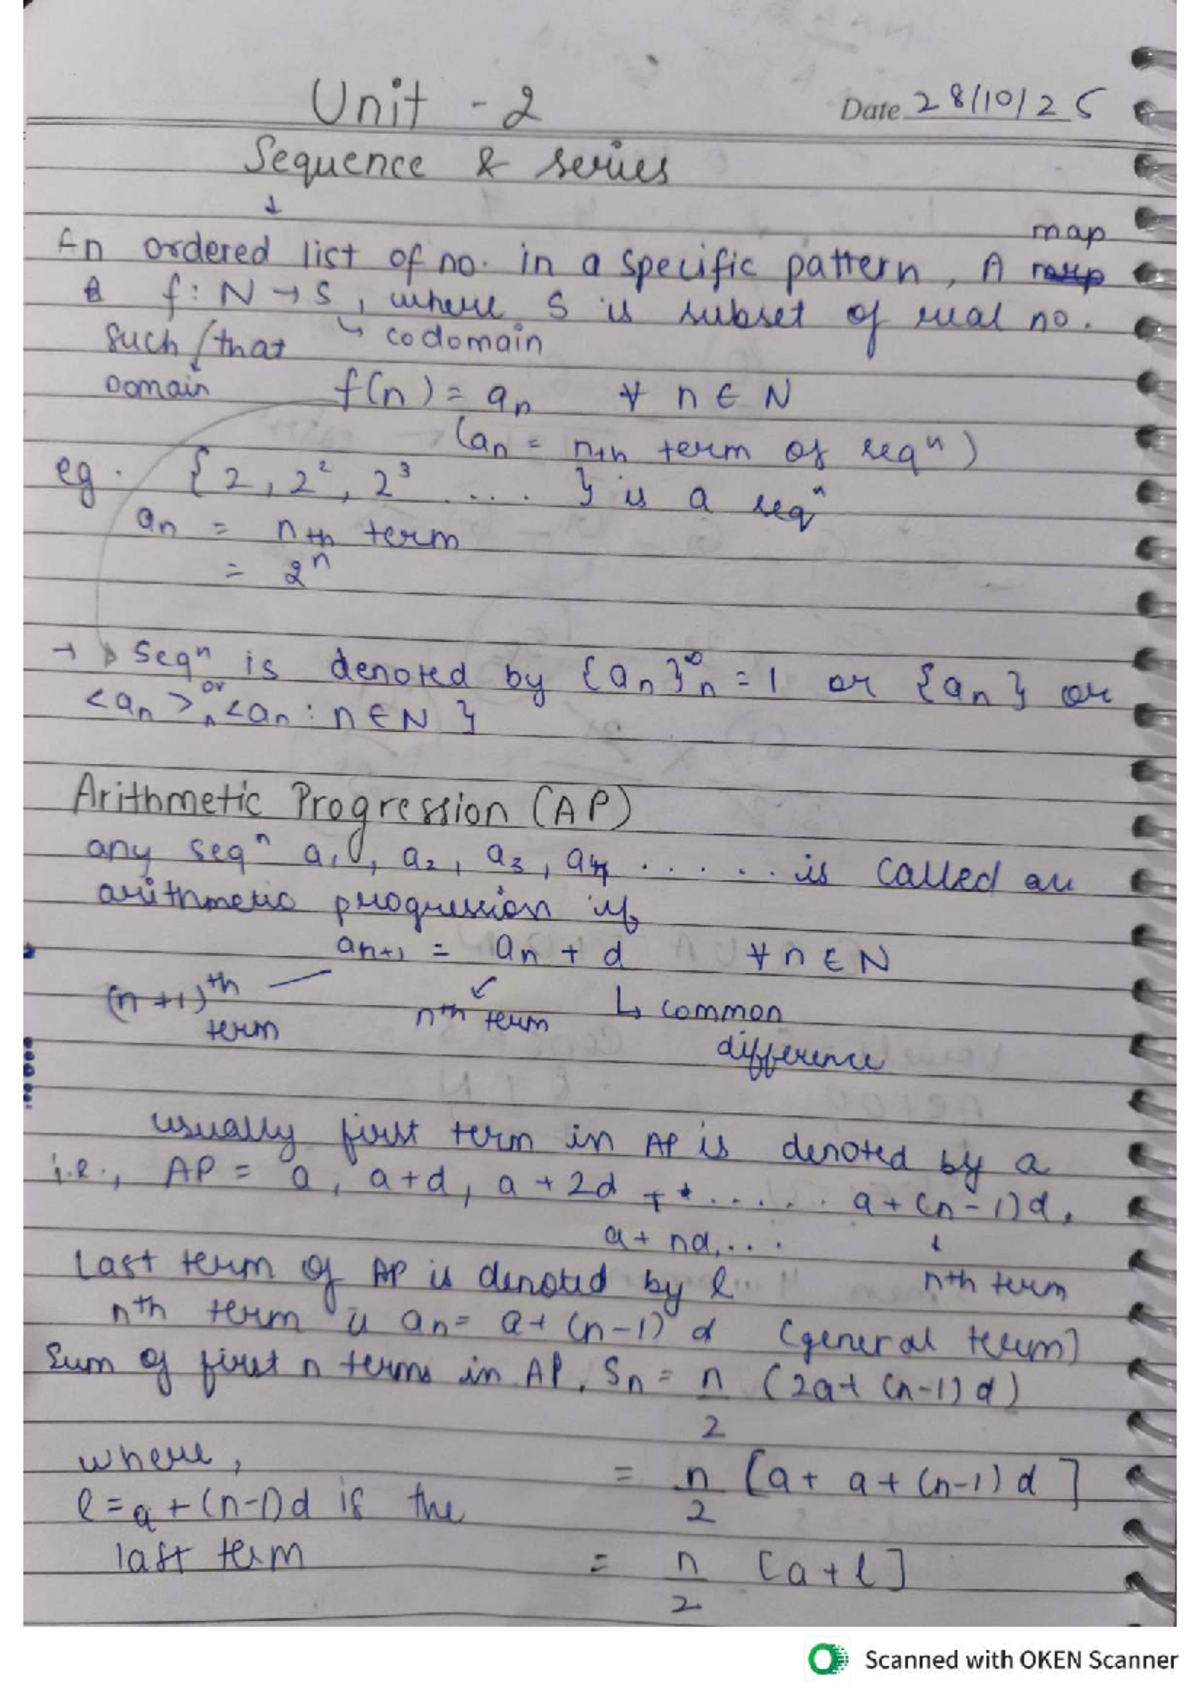 Unit - 2
Date 28/10/25
Sequence & series
↓
An ordered list of no. in a specific pattern, A map
f : N → S, where S is subset of real no.
such that ↳ codomain
Domain f(n) = aₙ ∀ n ∈ N
(aₙ = nth term of seqⁿ)
eg. {2, 2², 2³ .... } is a seqⁿ
aₙ = nth term
= 2ⁿ
→ Seqⁿ is denoted by {aₙ}^∞ₙ = 1 or {aₙ} or
<aₙ> or <aₙ : n ∈ N }
Arithmetic Progression (AP)
any seqⁿ a₁, a₂, a₃, a₄ ...... is called an
arithmetic progression if
aₙ₊₁ = aₙ + d ∀ n ∈ N
(n+1)ᵗʰ term nᵗʰ term ↳ common
difference
usually first term in AP is denoted by a
i.e., AP = a, a+d, a+2d + ...... a+(n-1)d,
a+nd,... ↓
Last term of AP is denoted by l nth term
nᵗʰ term is aₙ = a+(n-1)d (general term)
Sum of first n terms in AP, Sₙ = n/2 (2a+(n-1)d)
where, = n/2 [a+a+(n-1)d]
l = a+(n-1)d is the
last term = n/2 [a+l]
Scanned with OKEN Scanner